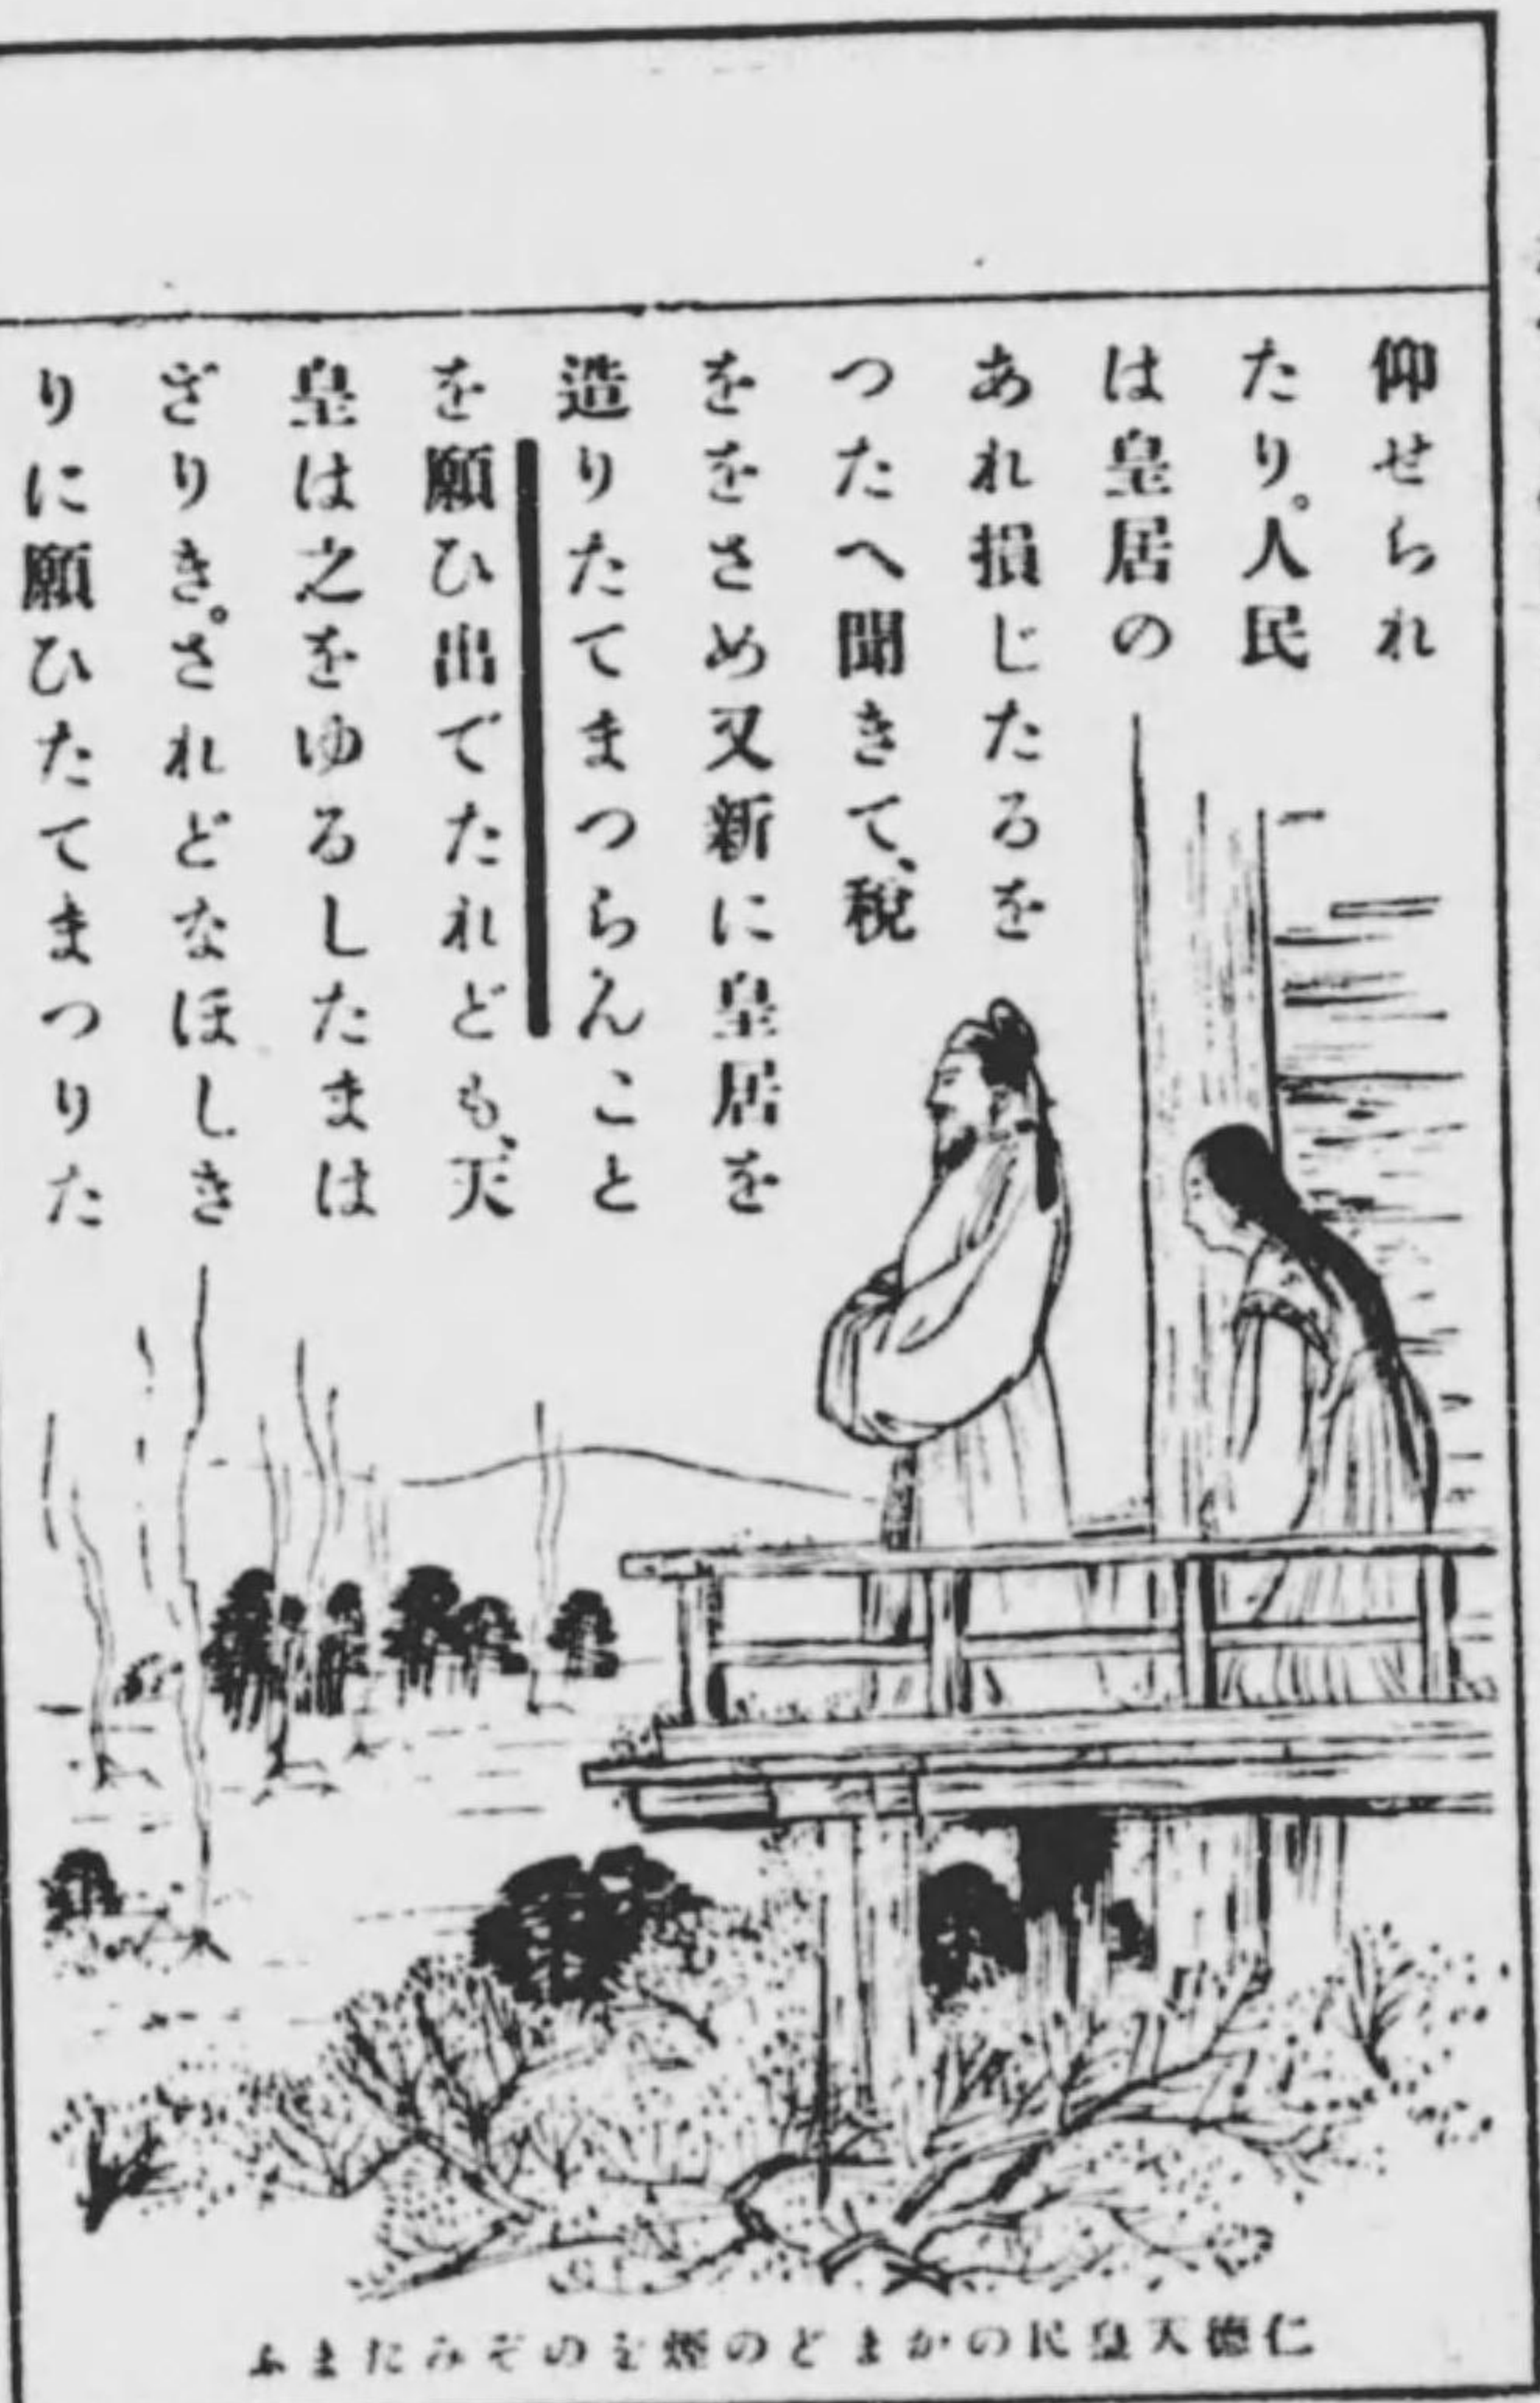 仰せられ
たり。人民
は皇居の
あれ損じたるを
つたへ聞きて、税
ををさめ又新に皇居を
造りたてまつらんこと
を願ひ出でたれども、天
皇は之をゆるしたまは
ざりき。されどなほしき
りに願ひたてまつりた
仁德天皇民のかまどの煙をのぞみたまふ